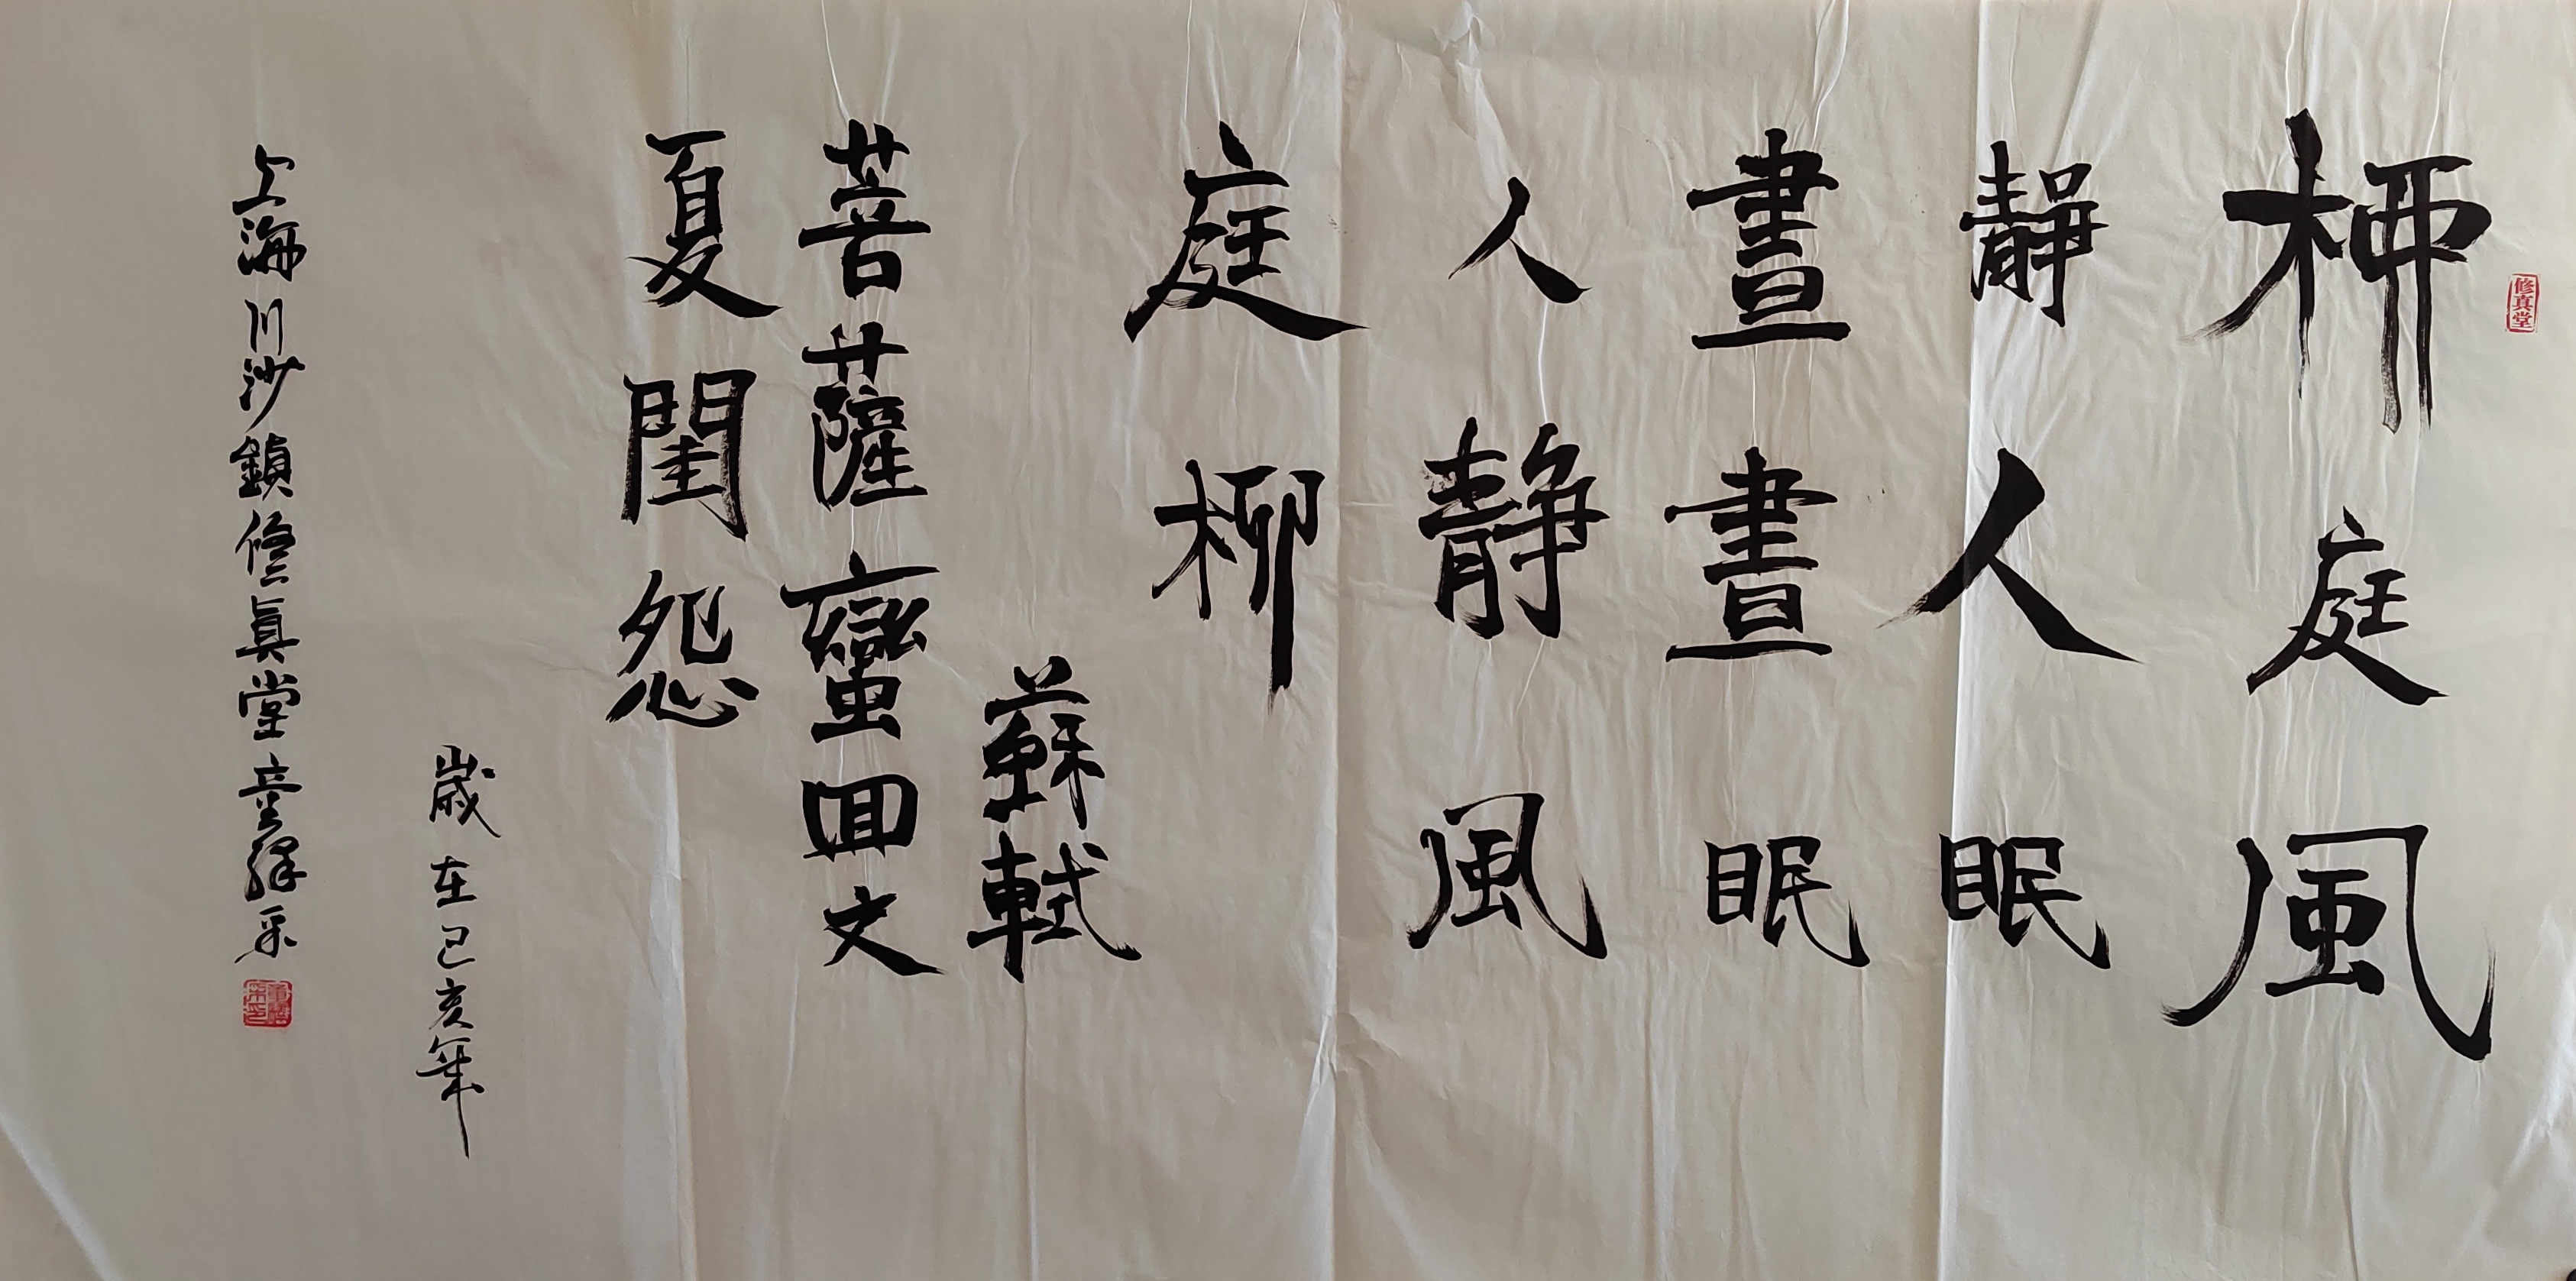 修真堂
柳庭風
靜人眠
晝晝眠
人静風
庭柳
蘇軾
菩薩蠻回文
夏閨怨
歲在己亥年
上海川沙鎮修真堂